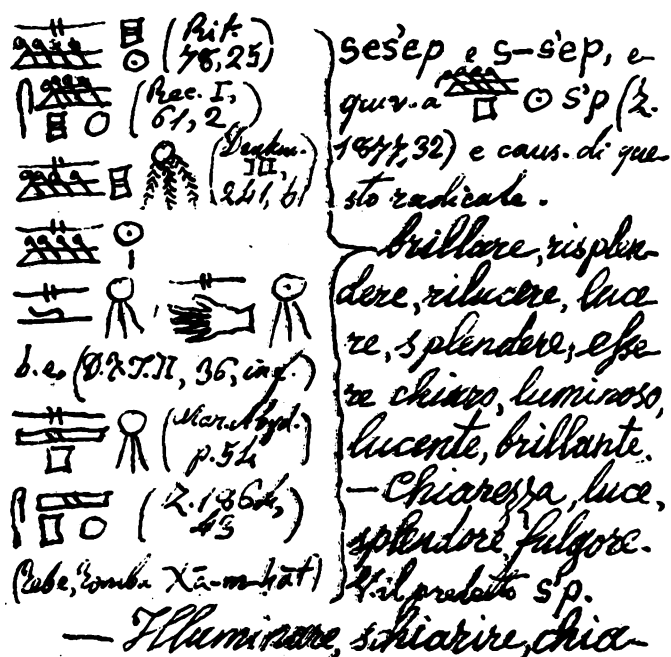 (Rit.
78,25)
(Rec. I,
61,2)
(Denkm.
III,
241, b)
b. e. (D.X.T.II, 36,
(Mar. Abyd.
p. 54
(Z. 1864,
43
(Tebe, tomba Xā-m-hāt)
ses'ep e s-s'ep, e-
quiv. a s'p (Z.
1877,32) e caus. di que-
sto radicale.
— brillare, risplen-
dere, rilucere, luce-
re, splendere, esse-
re chiaro, luminoso,
lucente, brillante.
— Chiarezza, luce,
splendore, fulgore.
V. il predetto s'p.
— Illuminare, schiarire, chia-